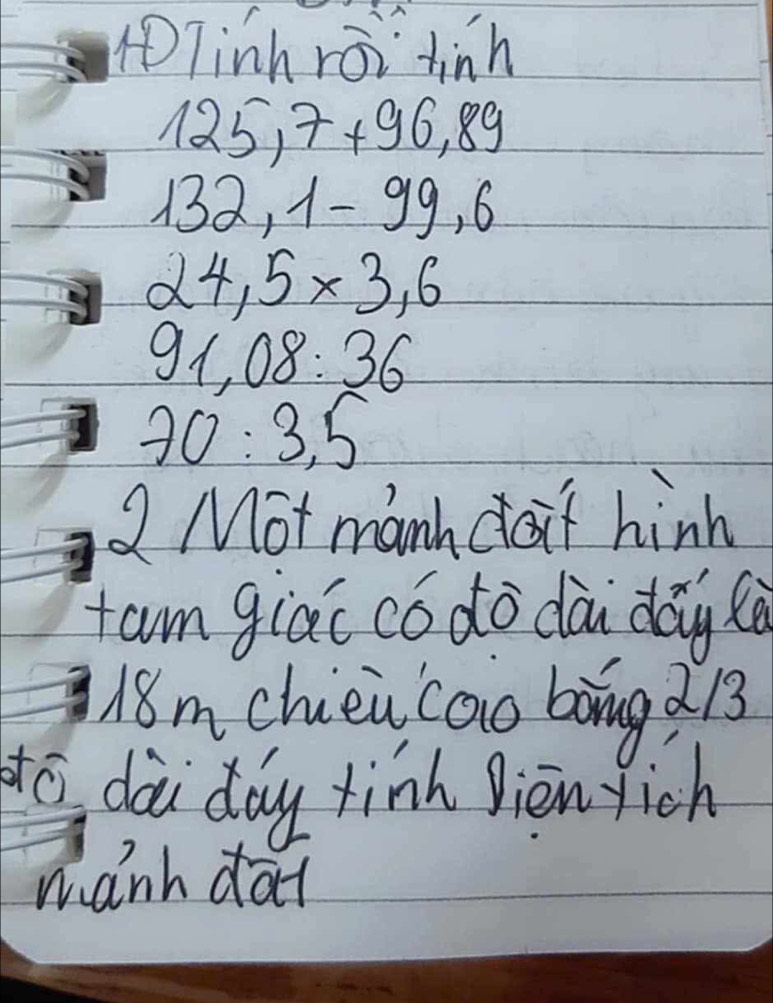 1 Đ Tính rồi tính
125,7 + 96,89
132,1 - 99,6
24,5 × 3,6
91,08 : 36
70 : 3,5
2 Một mảnh đất hình
tam giác có độ dài đáy là
18m chiều cao bằng 2/3
độ dài đáy tính diện tích
mảnh đất